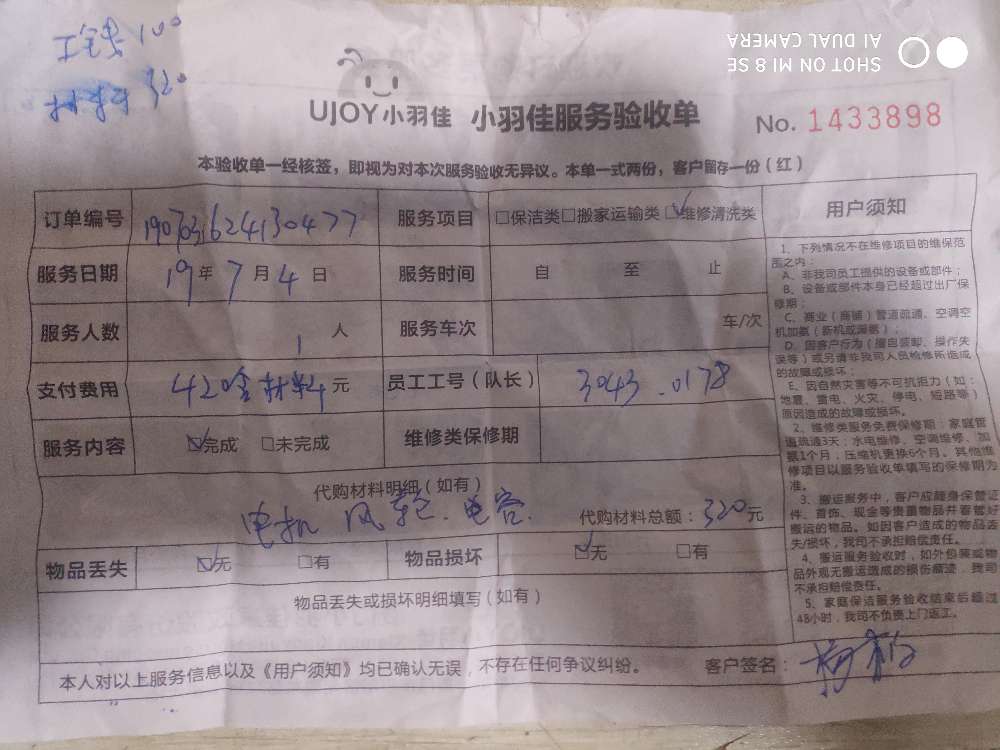 工钱 100
材料 320
SHOT ON MI 8 SE
AI DUAL CAMERA
UJOY小羽佳 小羽佳服务验收单
No. 1433898
本验收单一经核签，即视为对本次服务验收无异议。本单一式两份，客户留存一份（红）
订单编号 1907031624130477 服务项目 □保洁类□搬家运输类☑维修清洗类
服务日期 19年7月4日 服务时间 自 至 止
服务人数 1人 服务车次 车/次
支付费用 420含材料元 员工工号（队长） 3043.0178
服务内容 ☑完成 □未完成 维修类保修期
代购材料明细（如有）
电机 风轮.电容. 代购材料总额：320元
物品丢失 ☑无 □有 物品损坏 ☑无 □有
物品丢失或损坏明细填写（如有）
本人对以上服务信息以及《用户须知》均已确认无误，不存在任何争议纠纷。 客户签名：
用户须知
1、下列情况不在维修项目的维保范
围之内：
A、非我司员工提供的设备或部件；
B、设备或部件本身已经超过出厂保
修期；
C、商业（商铺）管道疏通、空调空
机加氨（新机或漏氨）；
D、因客户行为（擅自装卸、操作失
误等）或另请非我司人员检修所造成
的故障或损坏；
E、因自然灾害等不可抗拒力（如：
地震、雷电、火灾、停电、短路等）
原因造成的故障或损坏。
2、维修类服务免费保修期：家庭管
道疏通3天；水电维修、空调维修、加
氨1个月；压缩机更换6个月。其他维
修项目以服务验收单填写的保修期为
准。
3、搬运服务中，客户应随身保管证
件、首饰、现金等贵重物品并看管好
搬运的物品。如因客户造成的物品丢
失/损坏，我司不承担赔偿责任。
4、搬运服务验收时，如外包装或物
品外观无搬运造成的损伤痕迹，我司
不承担赔偿责任。
5、家庭保洁服务验收结束后超过
48小时，我司不负责上门返工。